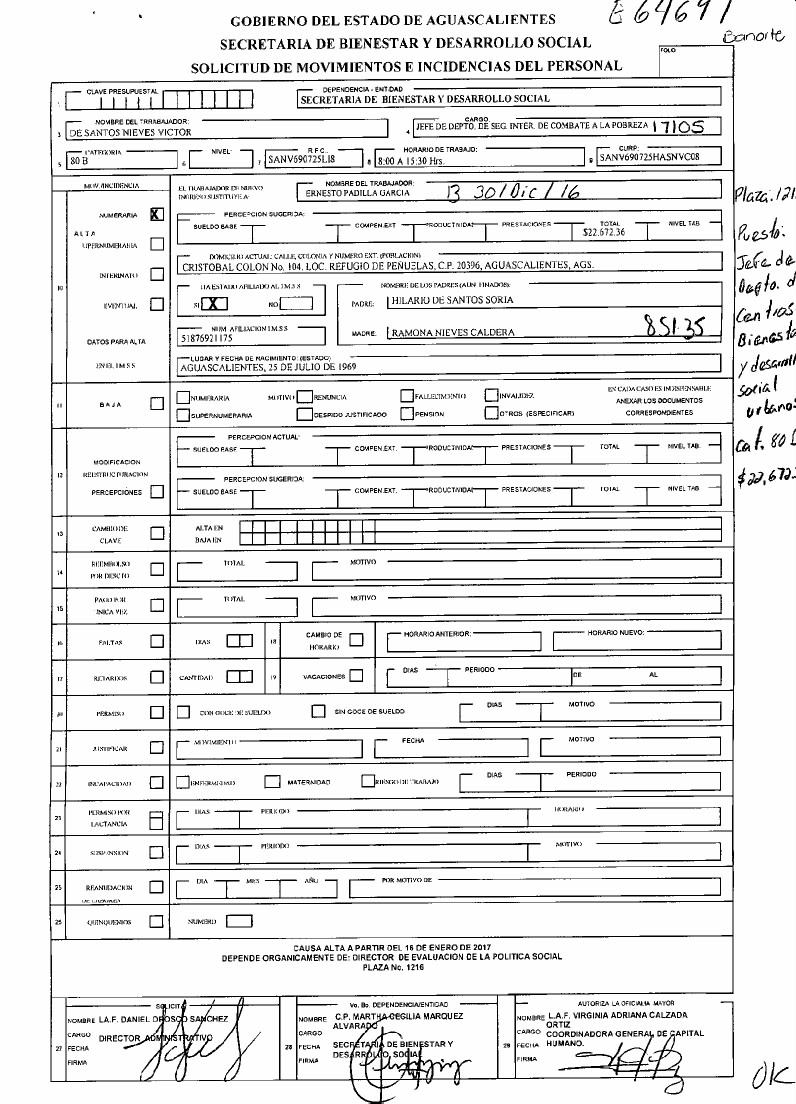 GOBIERNO DEL ESTADO DE AGUASCALIENTES
E64691
SECRETARIA DE BIENESTAR Y DESARROLLO SOCIAL
Banorte
SOLICITUD DE MOVIMIENTOS E INCIDENCIAS DEL PERSONAL
FOLIO
CLAVE PRESUPUESTAL
DEPENDENCIA - ENTIDAD
1
SECRETARIA DE BIENESTAR Y DESARROLLO SOCIAL
NOMBRE DEL TRRABAJADOR:
CARGO:
3 DE SANTOS NIEVES VICTOR
4 JEFE DE DEPTO. DE SEG. INTER. DE COMBATE A LA POBREZA 17105
CATEGORIA
NIVEL:
R.F.C.
HORARIO DE TRABAJO:
CURP:
5 80 B
6
7 SANV690725LI8
8 8:00 A 15:30 Hrs.
9 SANV690725HASNVC08
MOV./INCIDENCIA
EL TRABAJADOR DE NUEVO INGRESO SUSTITUYE A:
NOMBRE DEL TRABAJADOR:
ERNESTO PADILLA GARCIA
B 30/Dic/16
NUMERARIA X
PERCEPCION SUGERIDA:
SUELDO BASE
COMPEN.EXT.
PRODUCTIVIDAD
PRESTACIONES
TOTAL
NIVEL TAB.
$22.672.36
ALTA
UPERNUMERARIA
DOMICILIO ACTUAL: CALLE, COLONIA Y NUMERO EXT. (POBLACION)
CRISTOBAL COLON No. 104. LOC. REFUGIO DE PEÑUELAS, C.P. 20396, AGUASCALIENTES, AGS.
INTERINATO
10
HA ESTADO AFILIADO AL I.M.S.S
NOMBRE DE LOS PADRES (AUN FINADOS):
EVENTUAL
SI X
NO
PADRE:
HILARIO DE SANTOS SORIA
NUM AFILIACION I.M.S.S
DATOS PARA ALTA
51876921175
MADRE:
RAMONA NIEVES CALDERA
85135
LUGAR Y FECHA DE NACIMIENTO: (ESTADO)
EN EL I.M.S.S
AGUASCALIENTES, 25 DE JULIO DE 1969
Plaza: 121
Puesto:
Jefe de
Depto. d
Centros
Bienesta
y desarroll
social
urbanos
Cat. 80
$22,672.
11
BAJA
NUMERARIA
MOTIVO
RENUNCIA
FALLECIMIENTO
INVALIDEZ
EN CADA CASO ES INDISPENSABLE
ANEXAR LOS DOCUMENTOS
SUPERNUMERARIA
DESPIDO JUSTIFICADO
PENSION
OTROS (ESPECIFICAR)
CORRESPONDIENTES
PERCEPCION ACTUAL:
SUELDO BASE
COMPEN.EXT.
PRODUCTIVIDAD
PRESTACIONES
TOTAL
NIVEL TAB.
MODIFICACION
12
REESTRUCTURACION
PERCEPCIONES
PERCEPCION SUGERIDA:
SUELDO BASE
COMPEN.EXT.
PRODUCTIVIDAD
PRESTACIONES
TOTAL
NIVEL TAB.
13
CAMBIO DE CLAVE
ALTA EN
BAJA EN
14
REEMBOLSO POR DESCTO
TOTAL
MOTIVO
15
PAGO POR UNICA VEZ
TOTAL
MOTIVO
16
FALTAS
DIAS
18
CAMBIO DE HORARIO
HORARIO ANTERIOR:
HORARIO NUEVO:
17
RETARDOS
CANTIDAD
19
VACACIONES
DIAS
PERIODO
DE
AL
20
PERMISO
CON GOCE DE SUELDO
SIN GOCE DE SUELDO
DIAS
MOTIVO
21
JUSTIFICAR
MOVIMIENTO
FECHA
MOTIVO
22
INCAPACIDAD
ENFERMEDAD
MATERNIDAD
RIESGO DE TRABAJO
DIAS
PERIODO
23
PERMISO POR LACTANCIA
DIAS
PERIODO
HORARIO
24
SUSPENSION
DIAS
PERIODO
MOTIVO
25
REANUDACION
DIA
MES
AÑO
POR MOTIVO DE
26
QUINQUENIOS
NUMERO
CAUSA ALTA A PARTIR DEL 16 DE ENERO DE 2017
DEPENDE ORGANICAMENTE DE: DIRECTOR DE EVALUACION DE LA POLITICA SOCIAL
PLAZA No. 1216
SOLICITA
NOMBRE L.A.F. DANIEL OROSCO SANCHEZ
CARGO DIRECTOR ADMINISTRATIVO
27 FECHA
FIRMA
Vo. Bo. DEPENDENCIA/ENTIDAD
NOMBRE C.P. MARTHA CECILIA MARQUEZ ALVARADO
CARGO
28 FECHA SECRETARIA DE BIENESTAR Y
FIRMA DESARROLLO SOCIAL
AUTORIZA LA OFICIALIA MAYOR
NOMBRE L.A.F. VIRGINIA ADRIANA CALZADA ORTIZ
CARGO COORDINADORA GENERAL DE CAPITAL
29 FECHA HUMANO.
FIRMA
OK